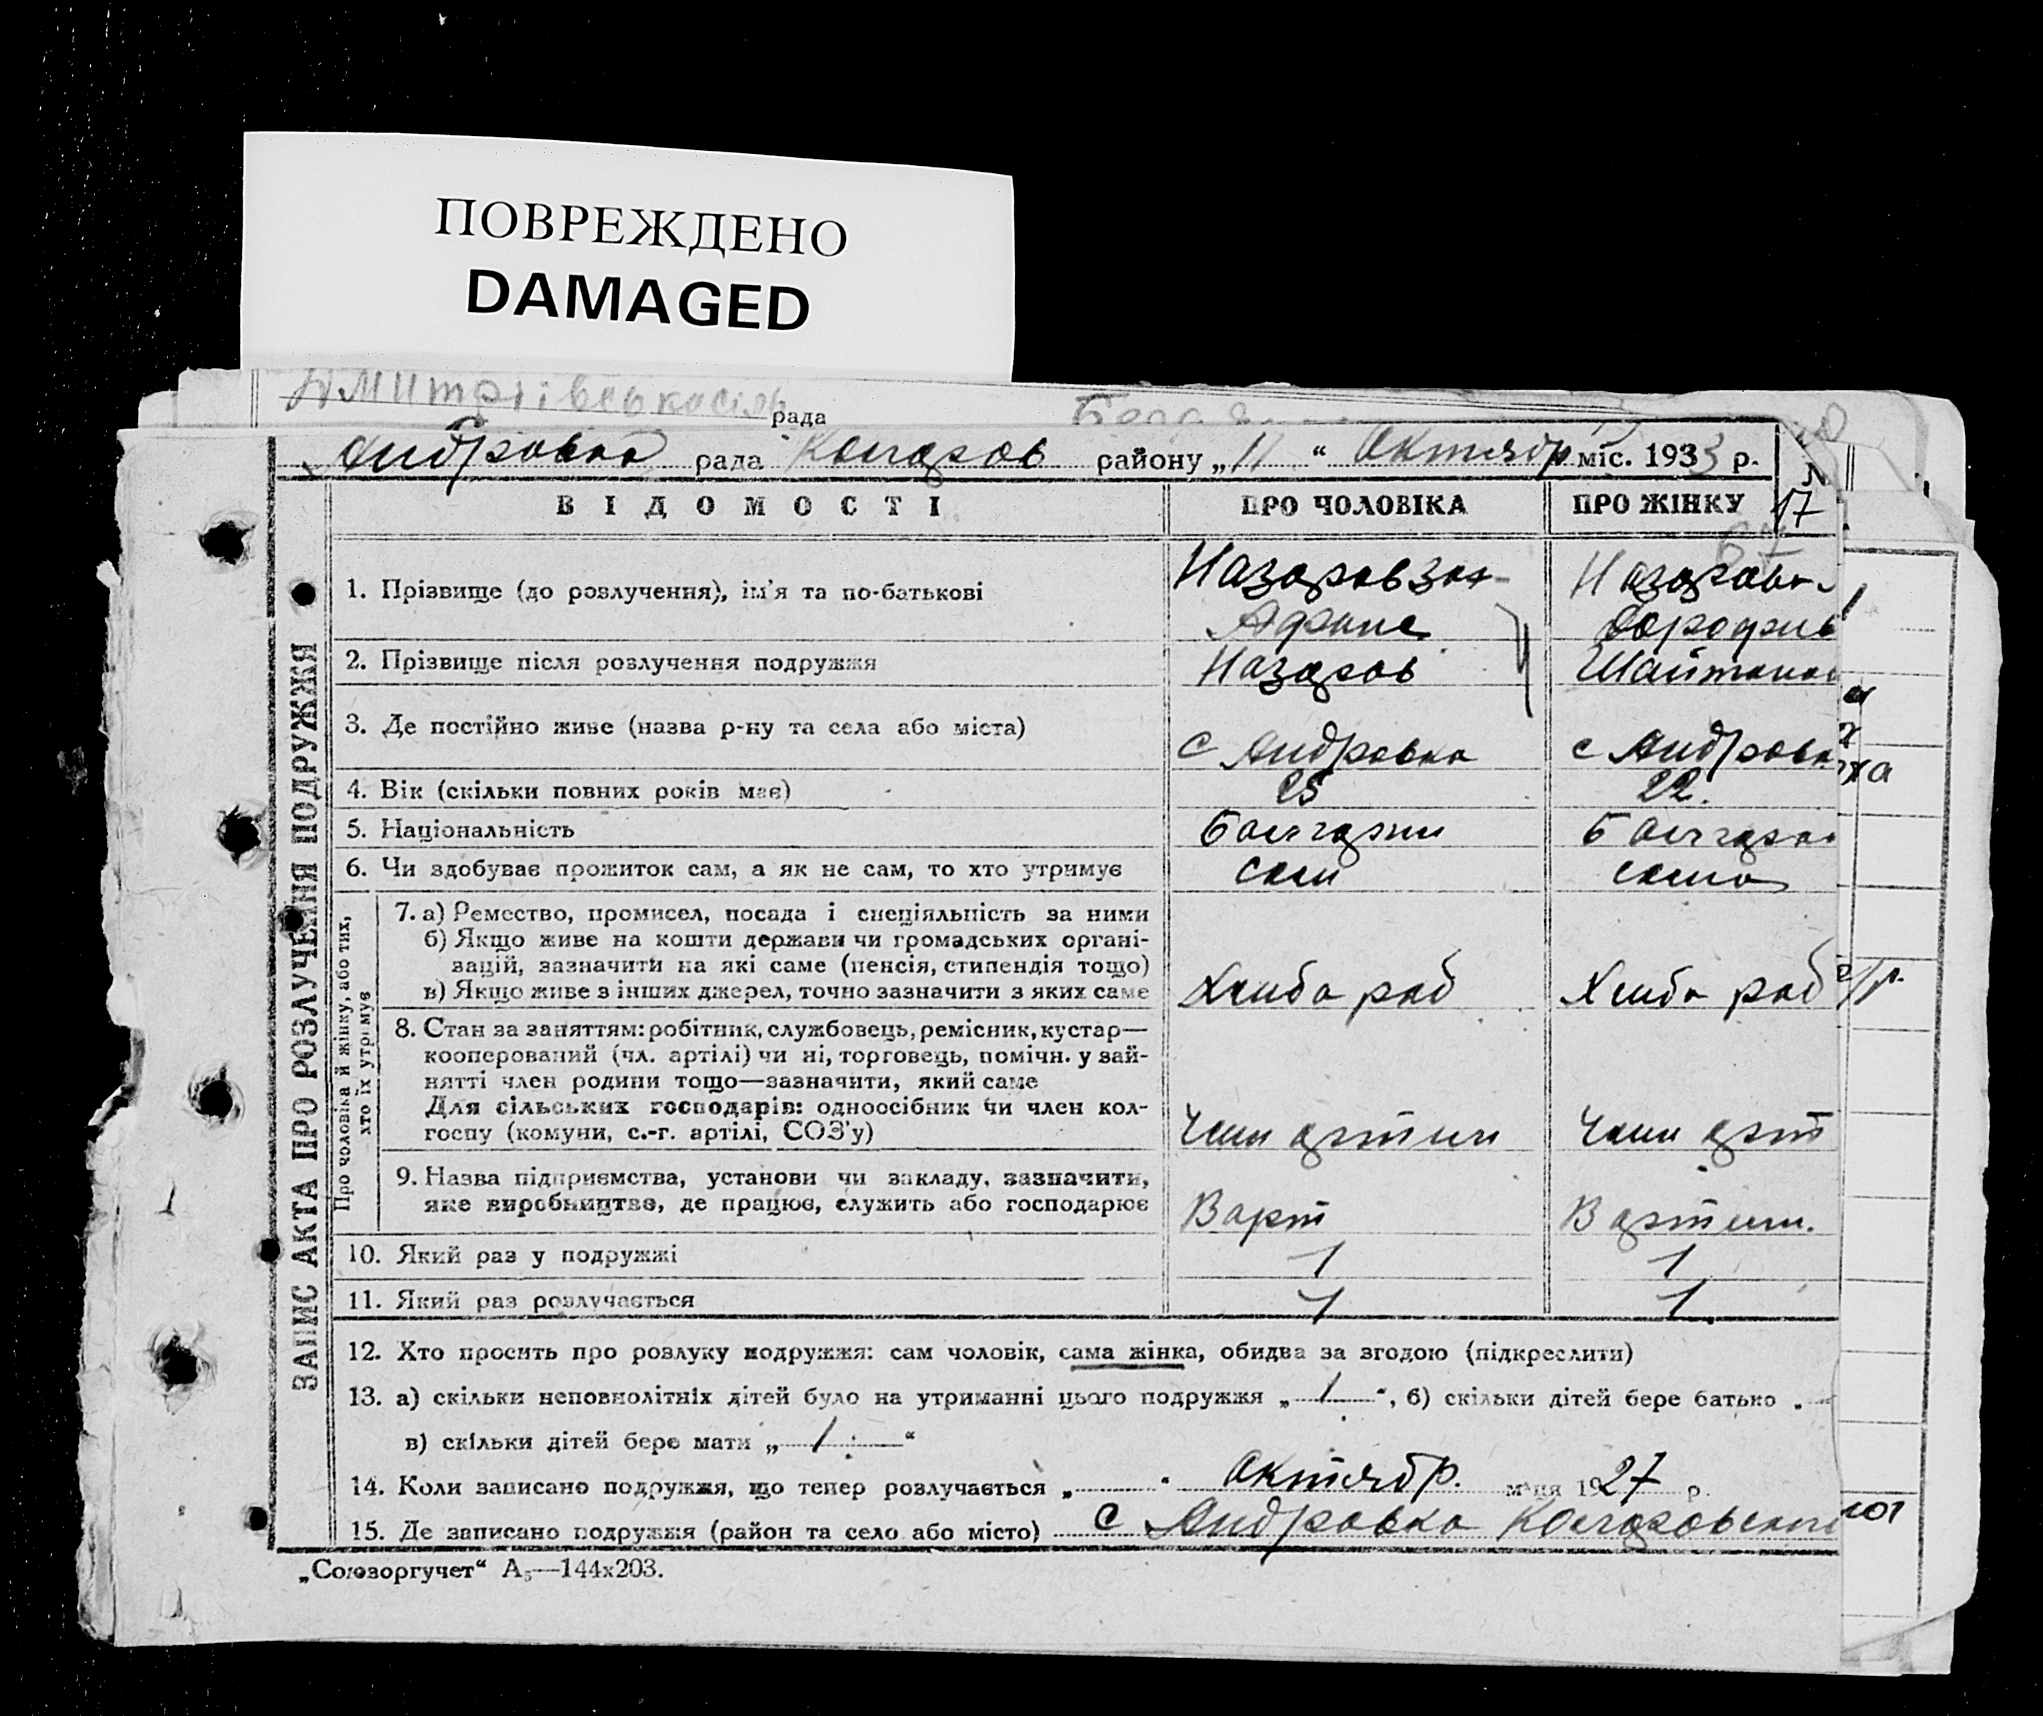 ПОВРЕЖДЕНО
DAMAGED
рада
Андровка рада району „11“ Октябр міс. 1933 р.
№ 17
ВІДОМОСТІ ПРО ЧОЛОВІКА ПРО ЖІНКУ
ЗАПИС АКТА ПРО РОЗЛУЧЕННЯ ПОДРУЖЖЯ
1. Прізвище (до розлучення), ім'я та по-батькові Назаров Назарова
2. Прізвище після розлучення подружжя Назаров
3. Де постійно живе (назва р-ну та села або міста) с Андровка с Андровка
4. Вік (скільки повних років має) 25 22.
5. Національність Болгарин Болгарка
6. Чи здобуває прожиток сам, а як не сам, то хто утримує сам сама
Про чоловіка й жінку, або тих,
хто їх утримує
7. а) Ремество, промисел, посада і спеціяльність за ними
б) Якщо живе на кошти держави чи громадських органі-
зацій, зазначити на які саме (пенсія, стипендія тощо)
в) Якщо живе з інших джерел, точно зазначити з яких саме Хлибо роб Хлибо роб
8. Стан за заняттям: робітник, службовець, ремісник, кустар—
кооперований (чл. артілі) чи ні, торговець, помічн. у зай-
нятті член родини тощо—зазначити, який саме
Для сільських господарів: одноосібник чи член кол-
госпу (комуни, с.-г. артілі, СОЗ'у) Член артили Член арт
9. Назва підприємства, установи чи закладу, зазначити,
яке виробництво, де працює, служить або господарює В арт В артили.
10. Який раз у подружжі 1 1
11. Який раз розлучається 1 1
12. Хто просить про розлуку подружжя: сам чоловік, сама жінка, обидва за згодою (підкреслити)
13. а) скільки неповнолітніх дітей було на утриманні цього подружжя „1“, б) скільки дітей бере батько „
в) скільки дітей бере мати „1“
14. Коли записано подружжя, що тепер розлучається „ “ Октябр. м-ця 1927 р.
15. Де записано подружжя (район та село або місто) с Андровка
„Союзоргучет“ А₅—144х203.